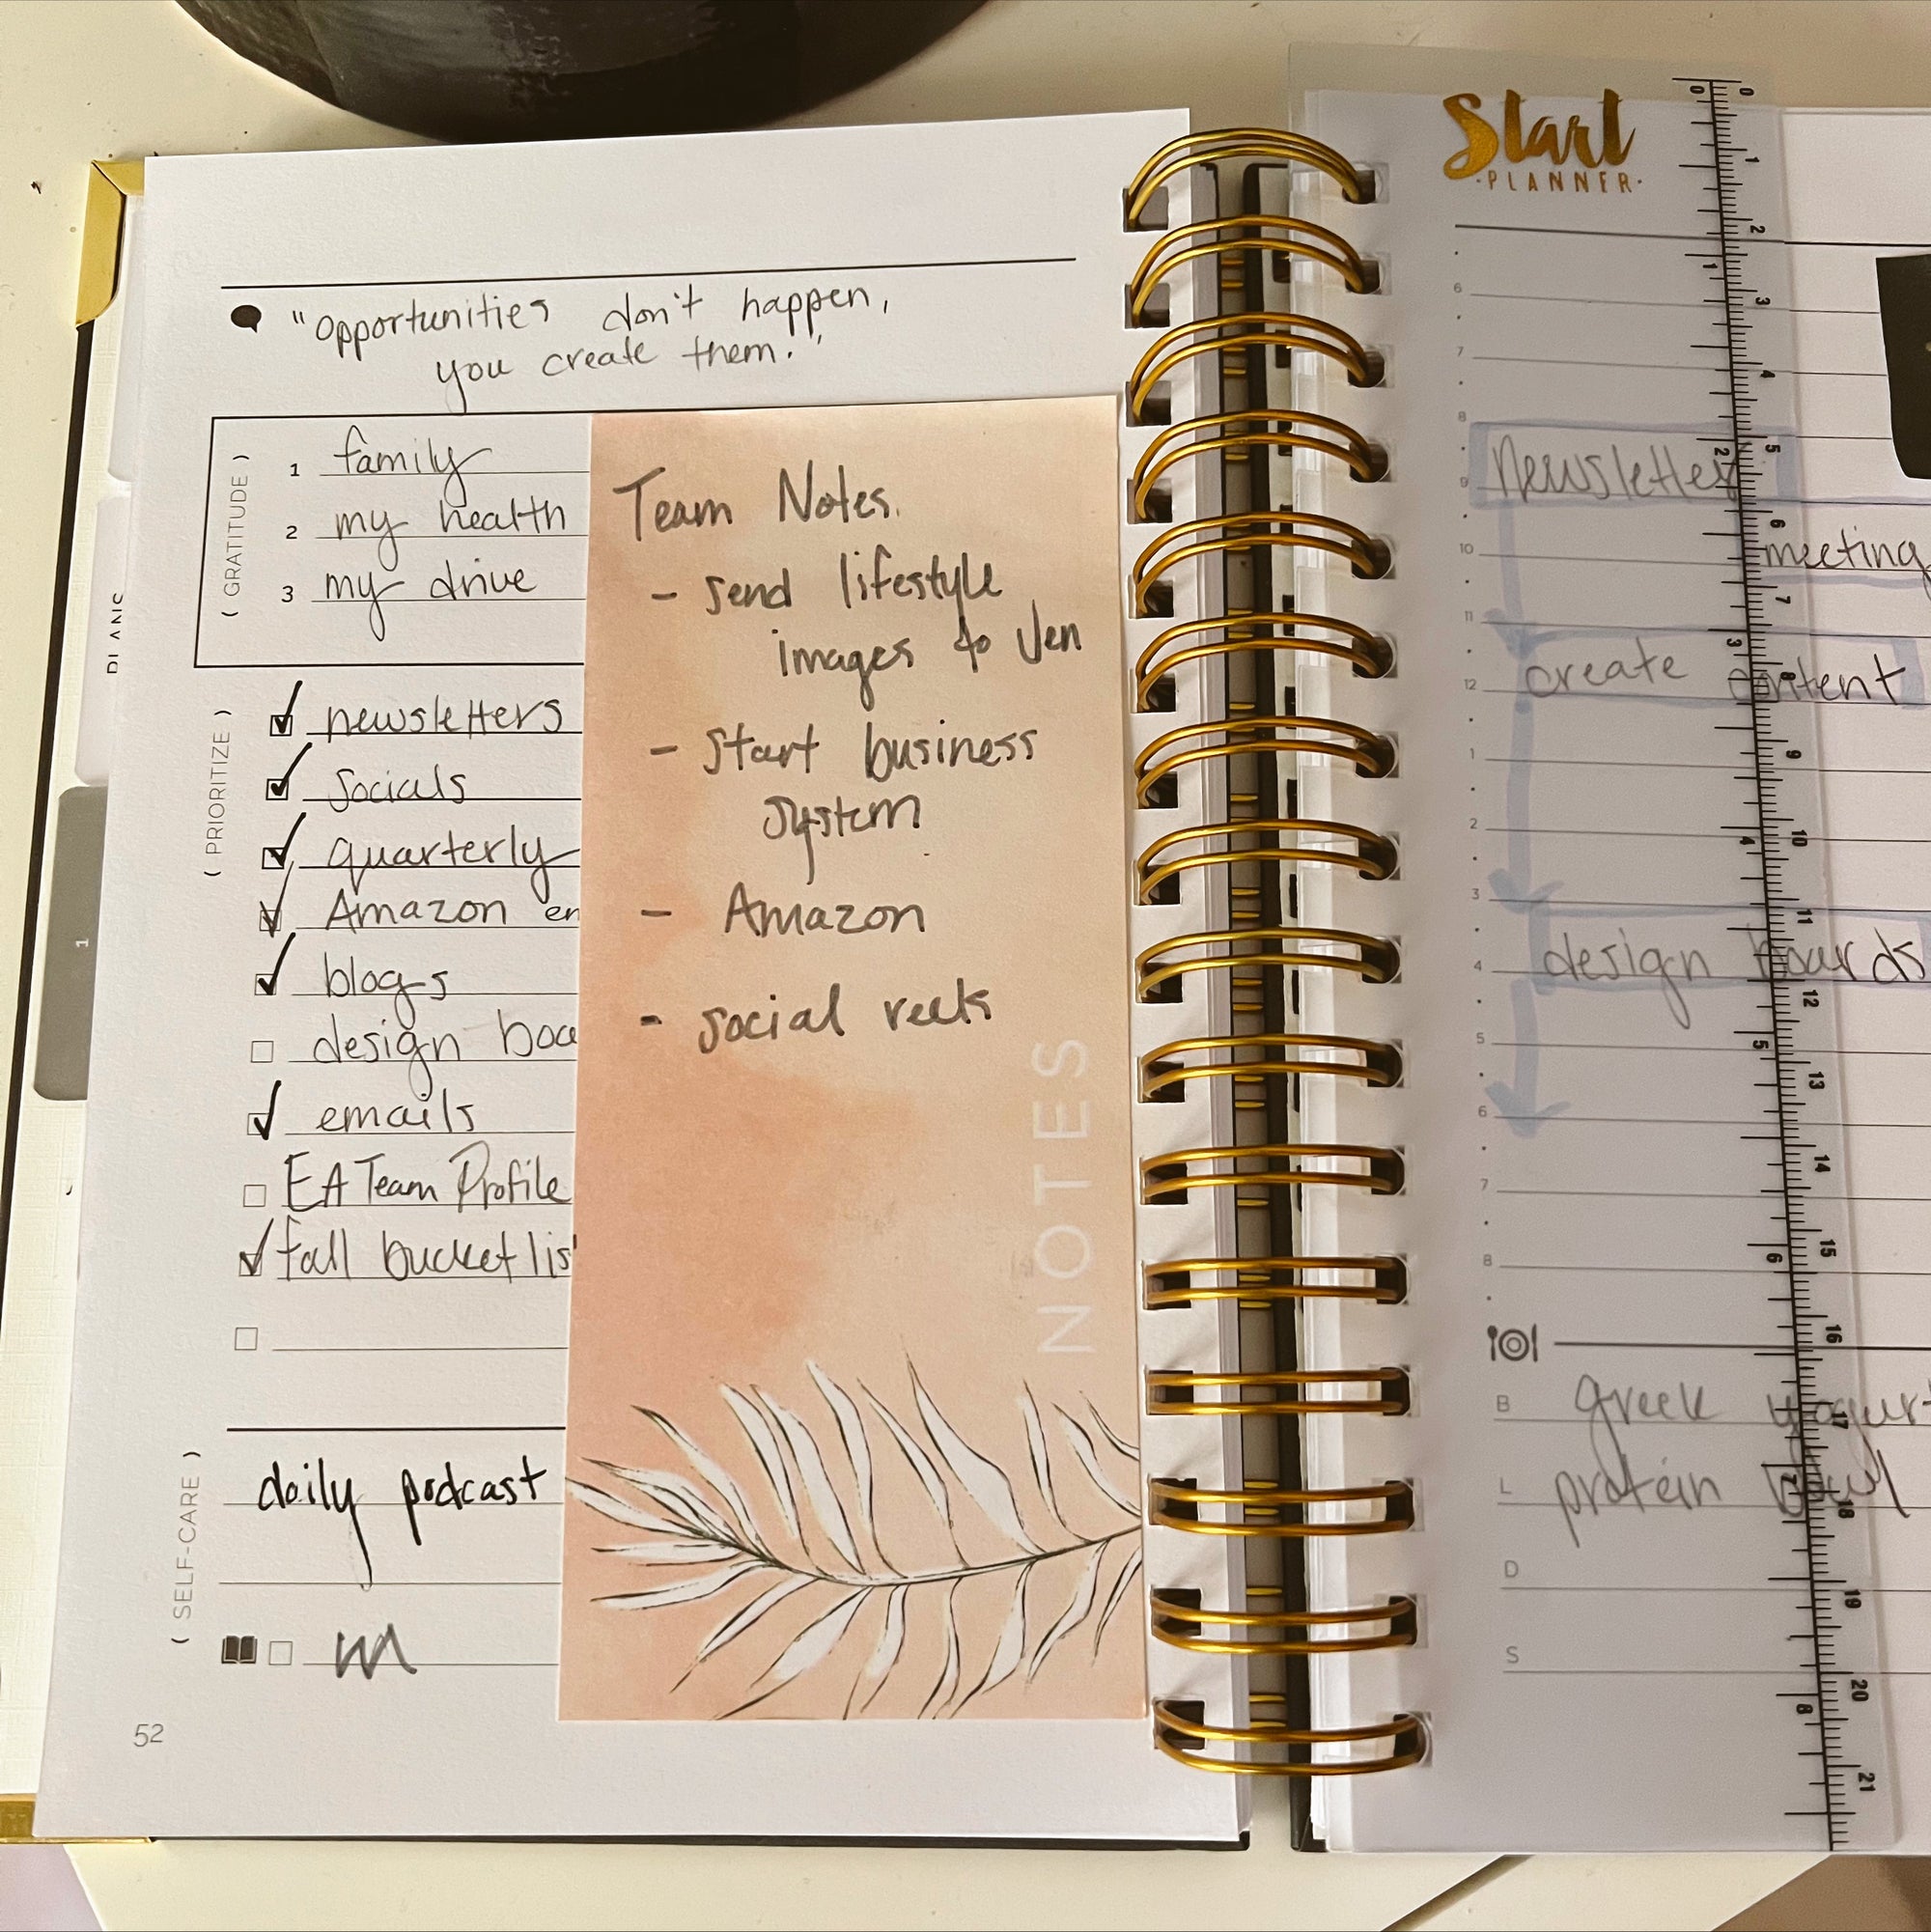 "Opportunities don't happen,
you create them."
( GRATITUDE )
1 family
2 my health
3 my drive
( PRIORITIZE )
newsletters
socials
quarterly
Amazon
blogs
design
emails
EA Team Profile
fall bucket
( SELF-CARE )
daily podcast
52
1
Team Notes.
- send lifestyle
images to Jen
- start business
system
- Amazon
- social reels
NOTES
Start
·PLANNER·
6
7
8
newsletter
9
10 meeting
11
create content
12
1
2
3
design boards
4
5
6
7
8
B greek yogurt
L protein bowl
D
S
0
1
2
3
4
5
6
7
8
9
10
11
12
13
14
15
16
17
18
19
20
21
0
1
2
3
4
5
6
7
8